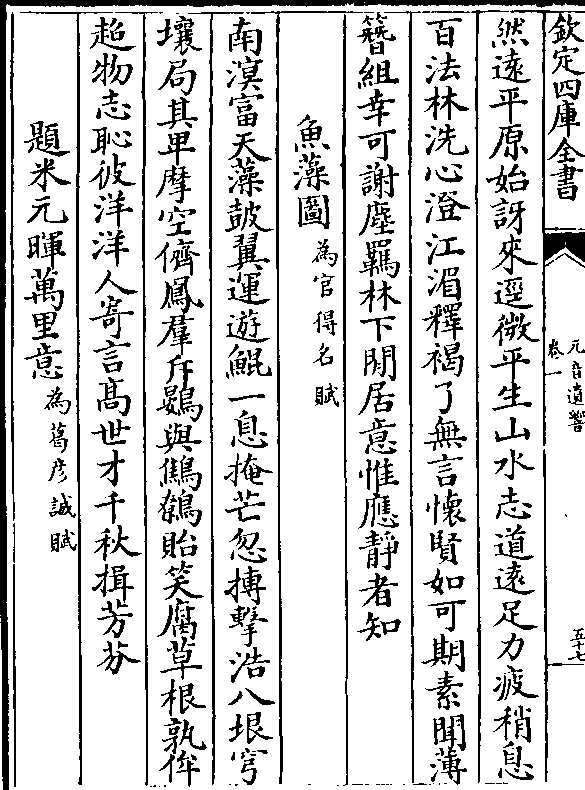 欽定四庫全書
元音遺響
卷一
五十七
然遠平原始訝來逕微平生山水志道遠足力疲稍息
百法林洗心澄江湄釋褐了無言懷賢如可期素聞薄
簪組幸可謝塵羈林下閒居意惟應靜者知
魚藻圖為官得名賦
南溟富天藻鼓翼運遊鯤一息掩芒忽摶擊浩八垠穹
壤局其卑摩空儕鳳羣斥鷃與鷦鷯貽笑腐草根孰侔
超物志恥彼洋洋人寄言高世才千秋揖芳芬
題米元暉萬里意為葛彥誠賦